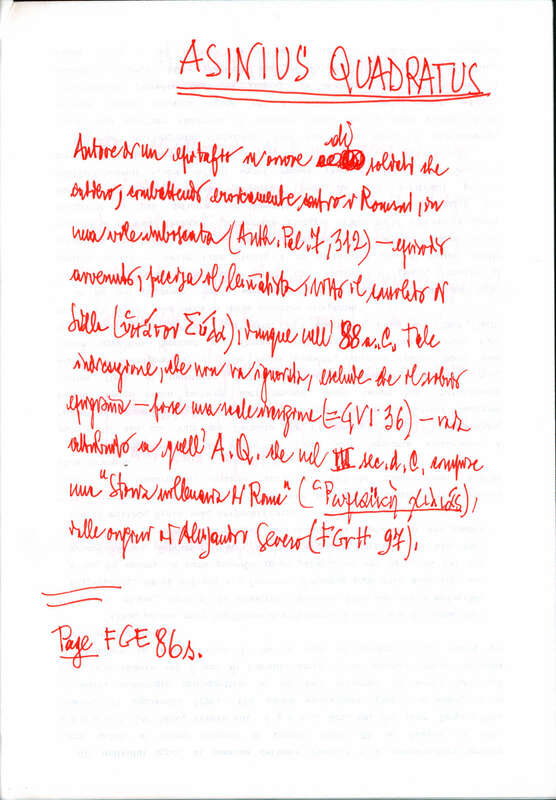 ASINIUS QUADRATUS
Autore di un epitaffio in onore di soldati che
caddero, combattendo eroicamente contro i Romani, in
una vile imboscata (Anth. Pal. 7, 312) – episodio
avvenuto, precisa il lemmatista, sotto il consolato di
Silla (ὕπατον Σύλλα), dunque nell' 88 a.C. Tale
indicazione, che non va ignorata, esclude che il sobrio
epigramma – forse una reale iscrizione (= GVI 36) – vada
attribuito a quell' A.Q. che nel III sec. d.C. compose
una "Storia millenaria di Roma" (Ῥωμαϊκὴ χιλιάς),
dalle origini ad Alessandro Severo (FGrH 97).
Page FGE 86s.